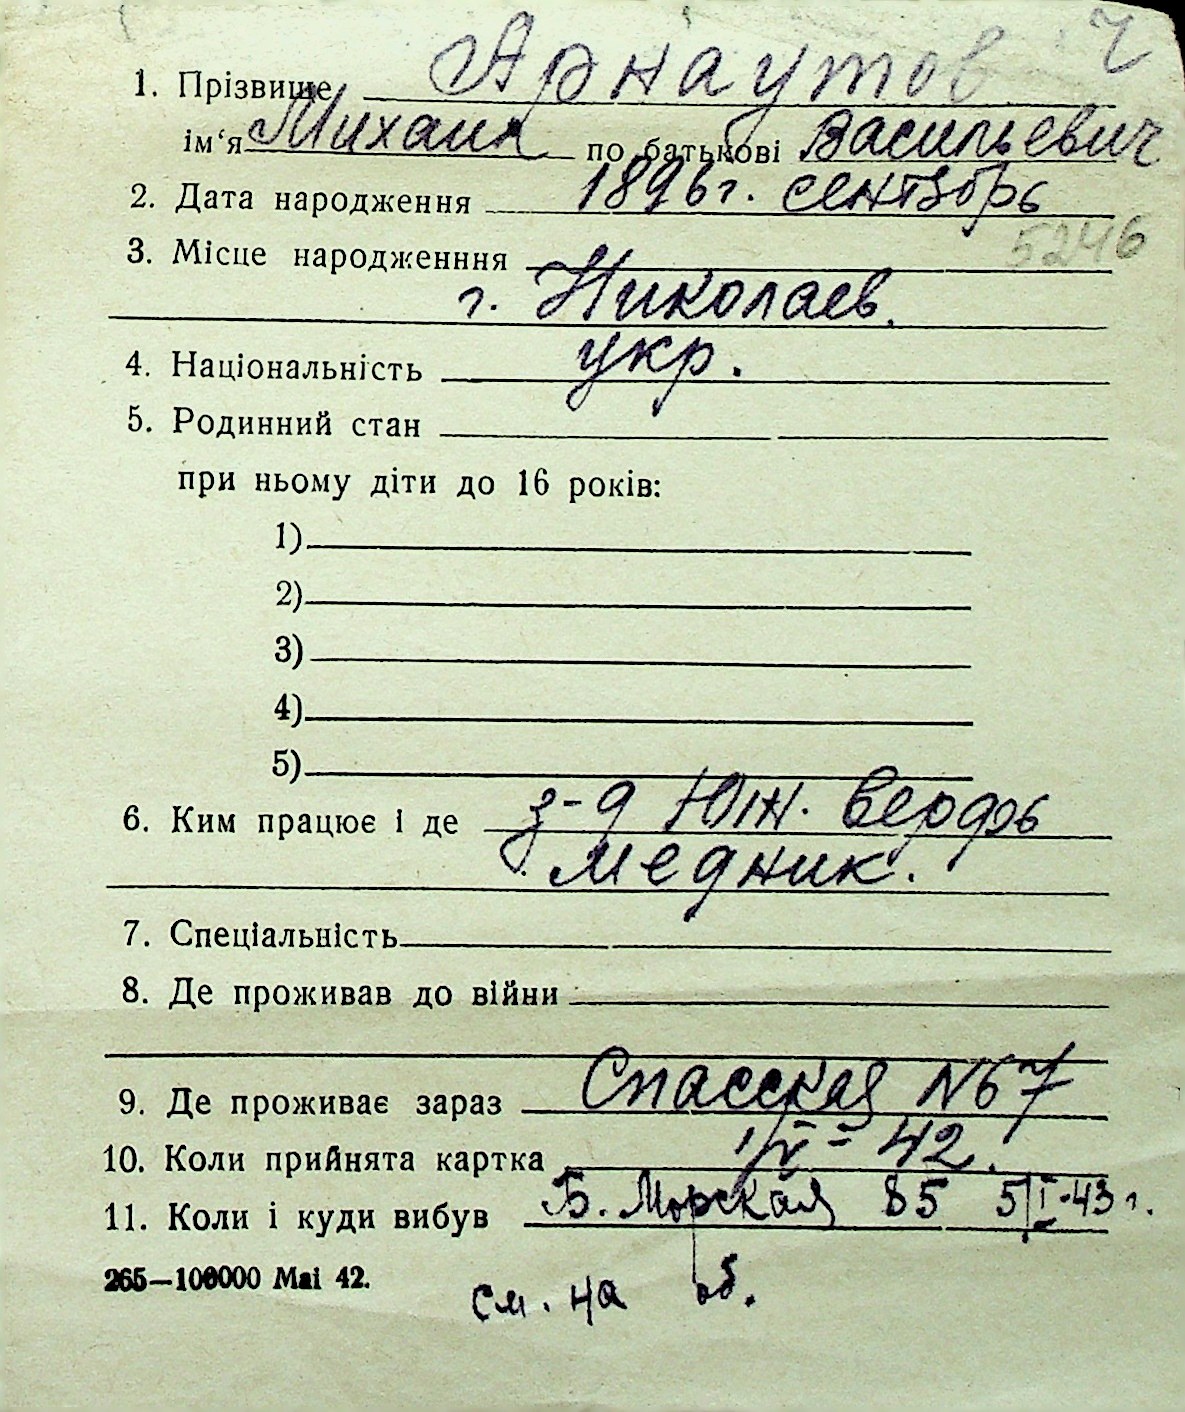 Ч
1. Прізвище Арнаутов
ім‘я Михаил по батькові Васильевич
2. Дата народження 1896г. сентябрь
5246
3. Місце народженння
г. Николаев.
4. Національність укр.
5. Родинний стан
при ньому діти до 16 років:
1)
2)
3)
4)
5)
6. Ким працює і де з-д Юж. верфь
медник.
7. Спеціальність
8. Де проживав до війни
9. Де проживає зараз Спасская №67
10. Коли прийнята картка 1/V-42.
11. Коли і куди вибув Б. Морская 85 5/I-43 г.
265—100000 Mai 42.
см. на об.